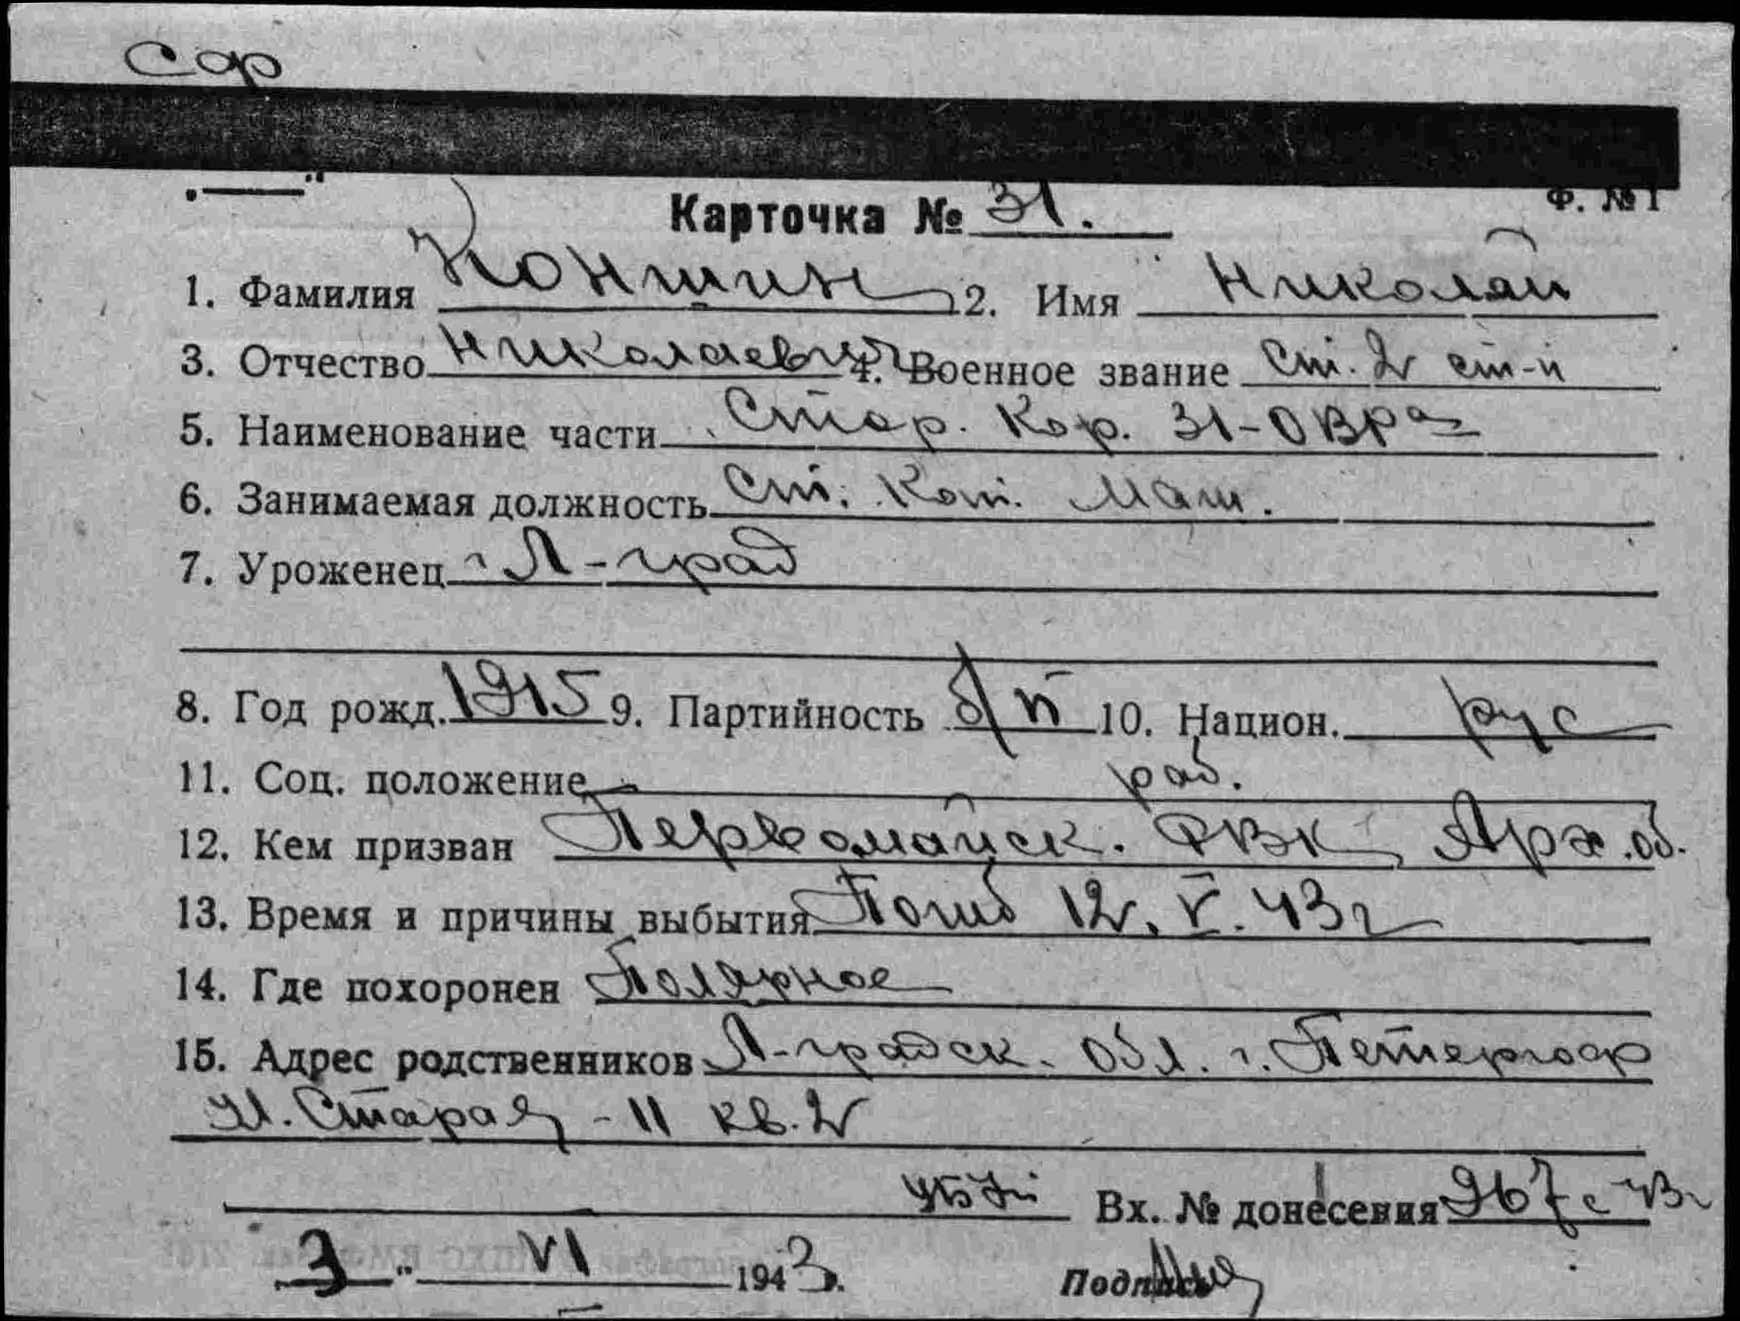 Сор
Ф. № 1
Карточка № 31.
1. Фамилия Коншин 2. Имя Николай
3. Отчество Николаевич 4. Военное звание Ст. 2 ст-и
5. Наименование части Стор. Кор. 31-ОВРа
6. Занимаемая должность Ст. Кот. Маш.
7. Уроженец г. Л-град
8. Год рожд. 1915 9. Партийность б/п 10. Национ. рус
11. Соц. положение раб.
12. Кем призван Первомайск. РВК, Яр. об.
13. Время и причины выбытия Погиб 12.V.43г
14. Где похоронен Полярное
15. Адрес родственников Л-градск. обл. г. Петергоф
ул. Старая - 11 кв. 2
Вх. № донесения 967с 43г
3 " VI 1943г.
Подпись